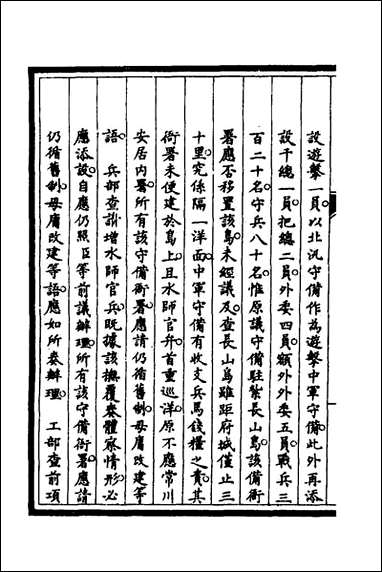 設遊擊一員以北汛守備作為遊擊中軍守備此外再添
設千總一員把總二員外委四員額外外委五員戰兵三
百二十名守兵八十名惟原議守備駐紮長山島該備衙
署應否移置該島未經議及查長山島雖距府城僅止三
十里究係隔一洋面中軍守備有收支兵馬錢糧之責其
衙署未便建於島上且水師官弁首重巡洋原不應常川
安居内署所有該守備衙署應請仍循舊制毋庸改建等
語 兵部查訓增水師官兵既據該撫覆奏體察情形必
應添設自應仍照臣等前議辦理所有該守備衙署應請
仍循舊制毋庸改建等語應如所奏辦理 工部查前項